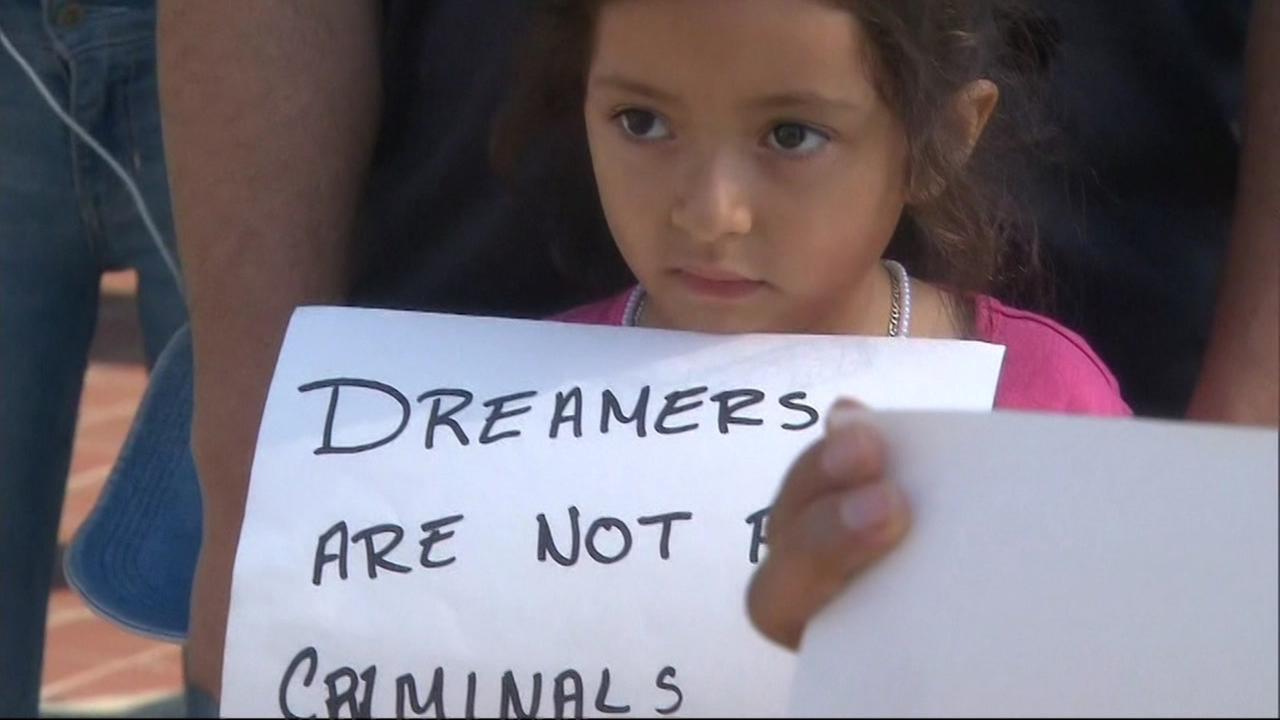 DREAMERS
ARE NOT
CRIMINALS